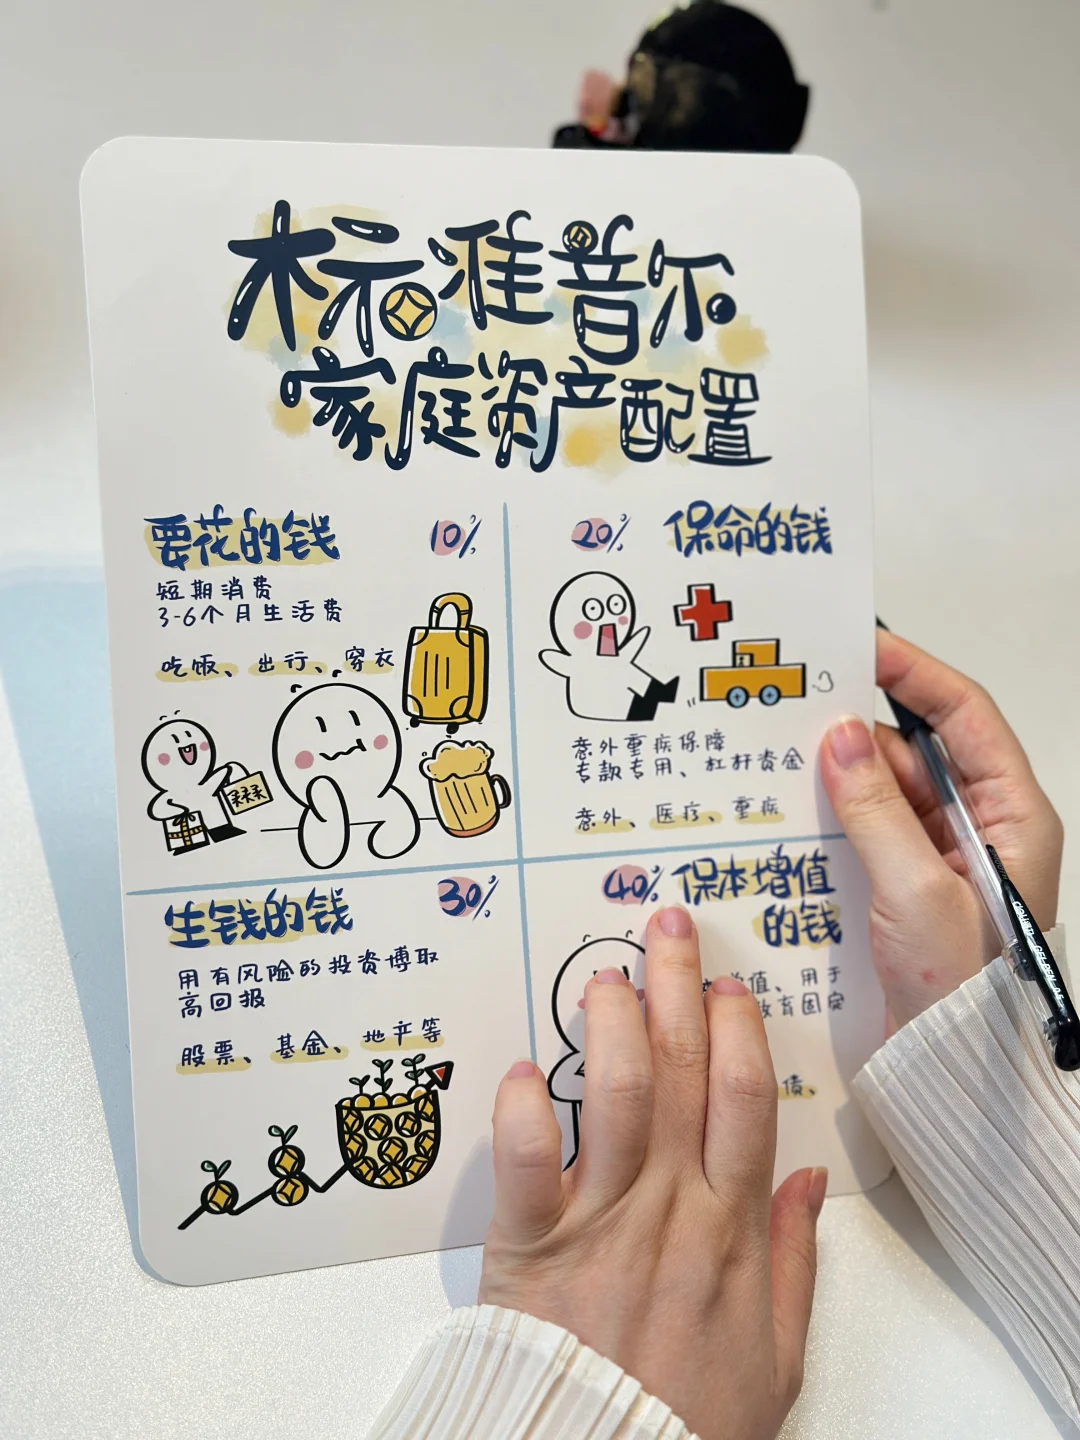 标准普尔
家庭资产配置
要花的钱 10%
短期消费
3-6个月生活费
吃饭、出行、穿衣
20% 保命的钱
意外重疾保障
专款专用、杠杆资金
意外、医疗、重疾
生钱的钱 30%
用有风险的投资博取
高回报
股票、基金、地产等
40% 保本增值
的钱
增值、用于
教育固定
债、
deli GEL PEN 0.5